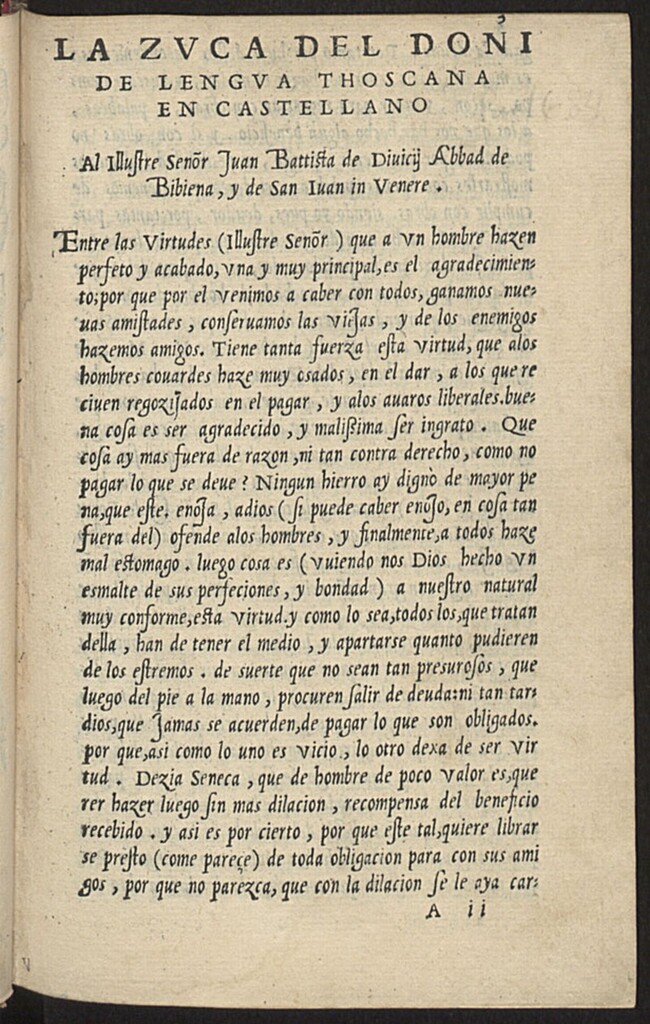 LA ZVCA DEL DOÑI
DE LENGVA THOSCANA
EN CASTELLANO
Al Illuſtre Senõr Juan Battiſta de Diuicij Abbad de
Bibiena, y de San Iuan in Venere.
Entre las Virtudes (Illuſtre Senõr) que a vn hombre hazen
perfeto y acabado, vna y muy principal, es el agradecimien-
to; por que por el venimos a caber con todos, ganamos nue-
uas amiſtades, conſeruamos las viejas, y de los enemigos
hazemos amigos. Tiene tanta fuerza eſta virtud, que alos
hombres couardes haze muy osados, en el dar, a los que re
ciuen regozijados en el pagar, y alos auaros liberales. bue-
na coſa es ser agradecido, y maliſsima ſer ingrato. Que
coſa ay mas fuera de razon, ni tan contra derecho, como no
pagar lo que se deue? Ningun hierro ay digno de mayor pe
na, que eſte. enoja, adios (ſi puede caber enojo, en coſa tan
fuera del) ofende alos hombres, y finalmente, a todos haze
mal eſtomago. luego cosa es (vuiendo nos Dios hecho vn
esmalte de sus perfeciones, y bondad) a nueſtro natural
muy conforme, eſta virtud. y como lo sea, todos los, que tratan
della, han de tener el medio, y apartarse quanto pudieren
de los eſtremos. de suerte que no sean tan presurosos, que
luego del pie a la mano, procuren ſalir de deuda: ni tan tar-
dios, que Jamas se acuerden, de pagar lo que son obligados.
por que, asi como lo uno es vicio, lo otro dexa de ser vir
tud. Dezia Seneca, que de hombre de poco valor es, que
rer hazer luego ſin mas dilacion, recompensa del beneficio
recebido. y asi es por cierto, por que eſte tal, quiere librar
se preſto (come pareçe) de toda obligacion para con sus ami
gos, por que no parezca, que con la dilacion ſe le aya car-
A ii